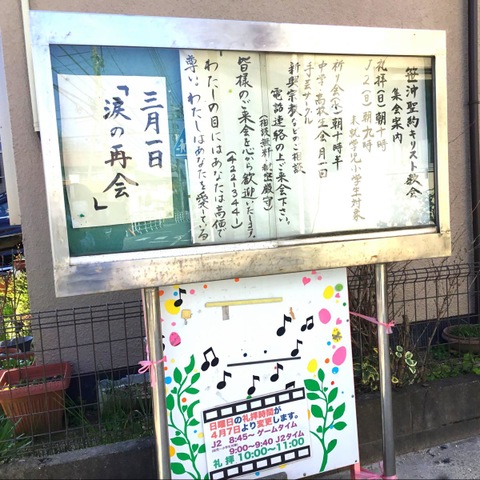 笹沖聖約キリスト教会
集会案内
礼拝(日)朝十時
J2(日)朝九時
未就学児小学生対象
祈り会(水)朝十時半
中学・高校生会 月一回
手芸サークル
新興宗教などのご相談
電話連絡の上ご来会下さい。
(相談無料 秘密厳守)
(422-3441)
皆様のご来会を心から歓迎いたします。
「わたしの目にはあなたは高価で
尊い。わたしはあなたを愛している
三月一日
「涙の再会」
日曜日の礼拝時間が
4月7日より変更します。
J2 8:45~ ゲームタイム
9:00~9:40 J2タイム
礼拝 10:00~11:00